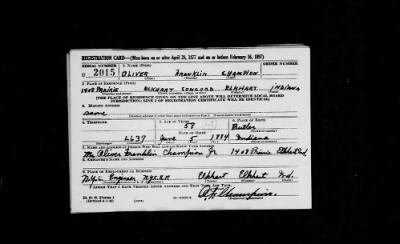 REGISTRATION CARD—(Men born on or after April 28, 1877 and on or before February 16, 1897)
SERIAL NUMBER 1. NAME (Print) ORDER NUMBER
U 2015 OLIVER FRANKLIN CHAMPION
2. PLACE OF RESIDENCE (Print)
1408 PRAIRIE ELKHART CONCORD ELKHART INDIANA
(THE PLACE OF RESIDENCE GIVEN ON THE LINE ABOVE WILL DETERMINE LOCAL BOARD
JURISDICTION; LINE 2 OF REGISTRATION CERTIFICATE WILL BE IDENTICAL)
3. MAILING ADDRESS
Same
4. TELEPHONE 5. AGE IN YEARS 6. PLACE OF BIRTH
57 Butler
DATE OF BIRTH
L637 5 1884 Indiana
7. NAME AND ADDRESS OF PERSON WHO WILL ALWAYS KNOW YOUR ADDRESS
Mr. Oliver Franklin Champion Jr. 1408 Elkhart Ind
8. EMPLOYER'S NAME AND ADDRESS
N.Y.C. Engineer
9. PLACE OF EMPLOYMENT OR BUSINESS
Elkhart Elkhart Ind.
I AFFIRM THAT I HAVE VERIFIED ABOVE ANSWERS AND THAT THEY ARE TRUE.
O. F. Champion